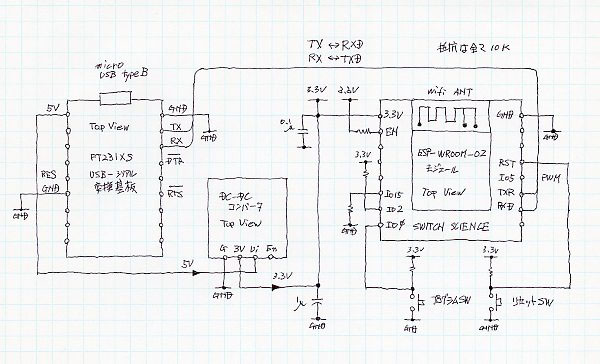 TX ↔ RXD
RX ↔ TXD
抵抗は全て10K
micro
USB typeB
5V
GND
TX
RX
DTR
RTS
Top View
FT231XS
USB-シリアル
変換基板
RES
GND
GND
GND
DC-DC
コンバータ
Top View
G 3V Vi En
GND
5V
3.3V
3.3V
3.3V
0.1
μ
GND
1μ
GND
wifi ANT
3.3V
EN
3.3V
IO15
IO2
IO0
GND
ESP-WROOM-02
モジュール
Top View
SWITCH SCIENCE
GND
RST
IO5
TXR
RXD
GND
PWM
3.3V
プログラムSW
GND
3.3V
リセットSW
GND